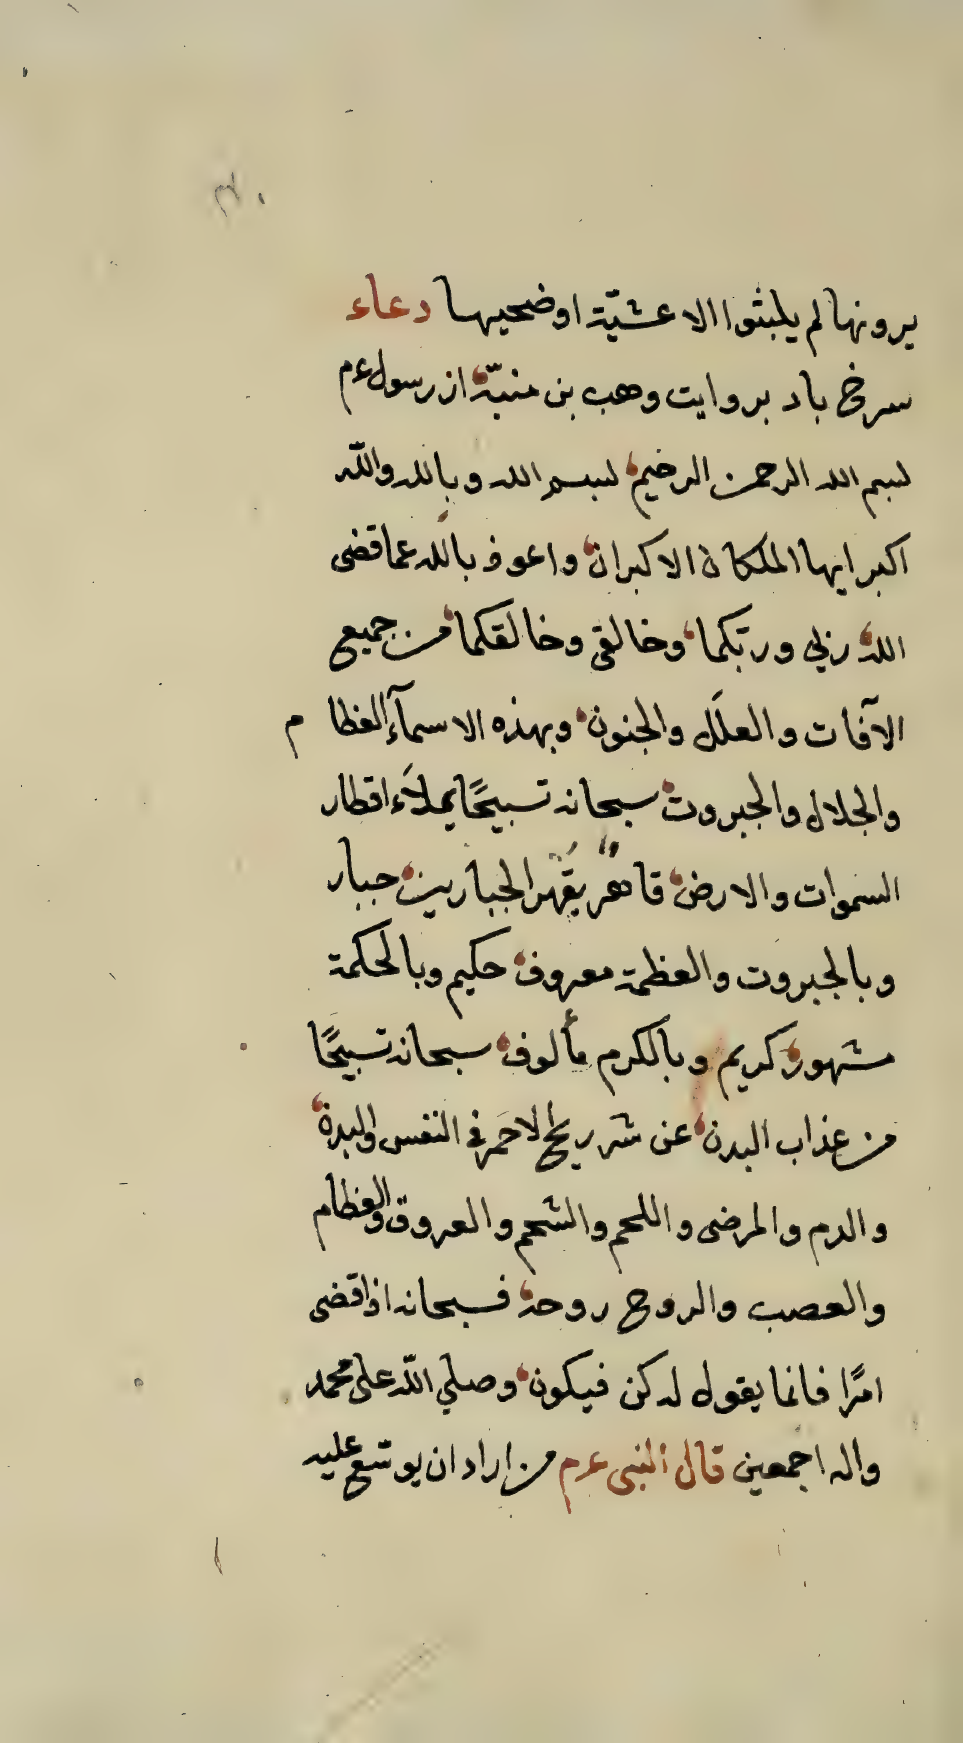 يرونها لم يلبثوا الا عشيّة اوضحيها دعاء
سرخ باد بروايت وهب بن منبّه از رسول عم
بسم الله الرحمن الرحيم بسم الله وبالله والله
اكبر ايها الملكان الاكبران واعوذ بالله عما قضى
الله ربى وربّكما وخالقى وخالقكما من جميع
الآفات والعلل والجنون وبهذه الاسمآء العظام
والجلال والجبروت سبحانه تسبيحًا يملاء اقطار
السموات والارض قاهر يقهر الجبارين جبار
وبالجبروت والعظمة معروف حكيم وبالحكمة
مشهور كريم وبالكرم مألوف سبحانه تسبيحًا
من عذاب البدن عن شر ريح الاحمر فى النفس والبدن
والدم والمرضى واللحم والشحم والعروق والعظام
والعصب والروح روحه فسبحانه اذا قضى
امرًا فانما يقول له كن فيكون وصلي الله على محمد
واله اجمعين قال النبى عم من اراد ان يوسّع عليه